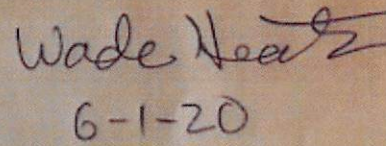 Wade Heath
6-1-20